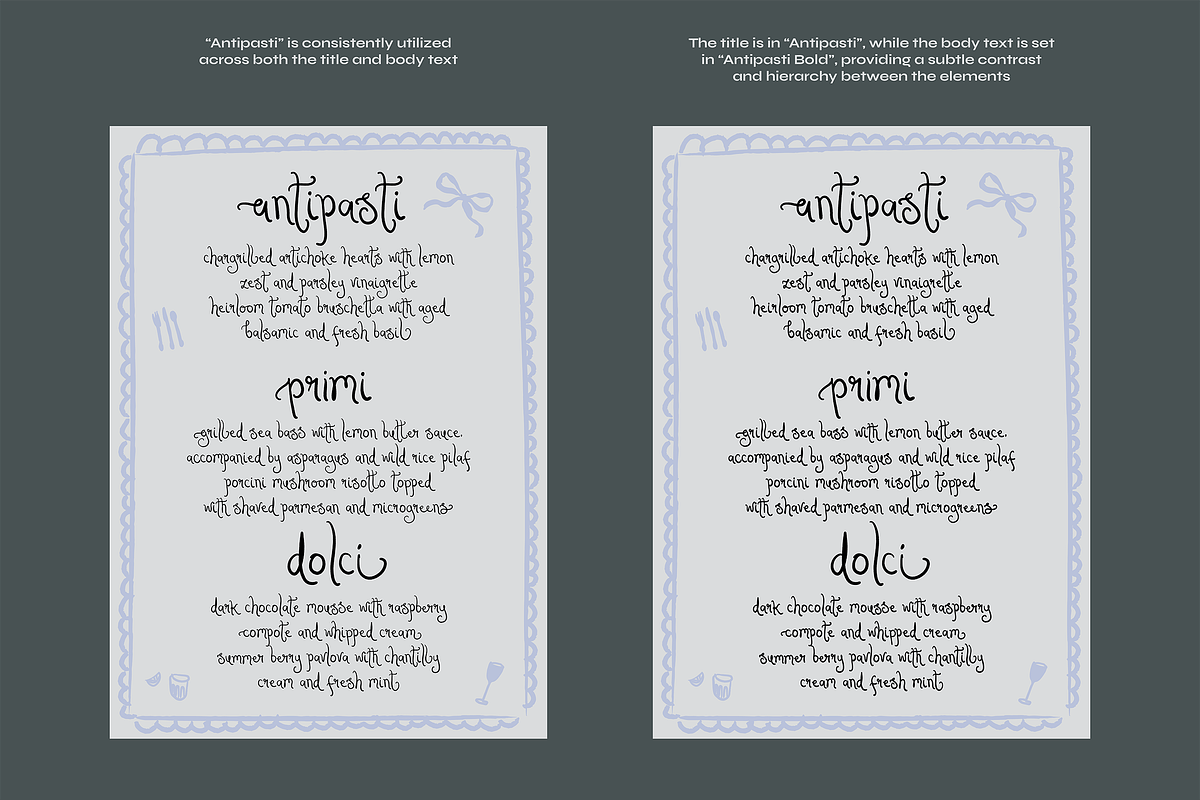 “Antipasti” is consistently utilized
across both the title and body text
antipasti
chargrilled artichoke hearts with lemon
zest and parsley vinaigrette
heirloom tomato bruschetta with aged
balsamic and fresh basil
primi
grilled sea bass with lemon butter sauce,
accompanied by asparagus and wild rice pilaf
porcini mushroom risotto topped
with shaved parmesan and microgreens
dolci
dark chocolate mousse with raspberry
compote and whipped cream
summer berry pavlova with chantilly
cream and fresh mint
The title is in “Antipasti”, while the body text is set
in “Antipasti Bold”, providing a subtle contrast
and hierarchy between the elements
antipasti
chargrilled artichoke hearts with lemon
zest and parsley vinaigrette
heirloom tomato bruschetta with aged
balsamic and fresh basil
primi
grilled sea bass with lemon butter sauce,
accompanied by asparagus and wild rice pilaf
porcini mushroom risotto topped
with shaved parmesan and microgreens
dolci
dark chocolate mousse with raspberry
compote and whipped cream
summer berry pavlova with chantilly
cream and fresh mint